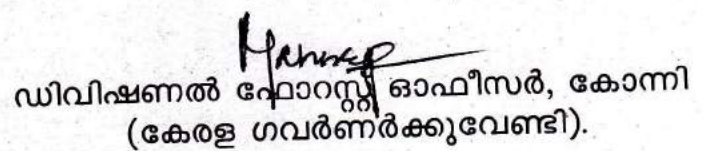 ഡിവിഷണൽ ഫോറസ്റ്റ് ഓഫീസർ, കോന്നി
(കേരള ഗവർണർക്കുവേണ്ടി).